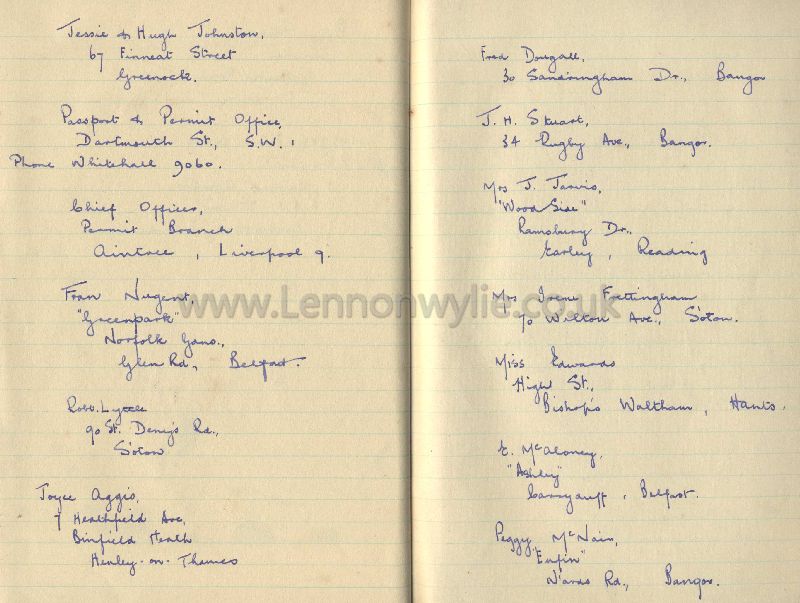 Jessie & Hugh Johnston,
67 Finneat Street
Greenock.
Passport & Permit Office,
Dartmouth St., S.W. 1
Phone Whitehall 9060.
Chief Officer,
Permit Branch
Aintree, Liverpool 9.
Fran Nugent,
"Greenpark"
Norfolk Gdns.,
Glen Rd., Belfast.
Robt. Lyttle
90 St. Deny's Rd.,
S'oton
Joyce Aggis,
7 Heathfield Ave,
Binfield Heath
Henley-on-Thames
Fred Dougall,
30 Sandringham Dr., Bangor
J. H. Stuart,
34 Rugby Ave., Bangor.
Mrs J. Jarvis,
"Wood Side"
Ramsbury Dr.,
Earley, Reading
Mrs Irene Frettingham
70 Wilton Ave., S'oton.
Miss Edwards
High St.,
Bishop's Waltham, Hants.
E. McAloney,
"Ashley"
Carryduff, Belfast.
Peggy McNair,
"Enfin"
N'ards Rd., Bangor.
www.Lennonwylie.co.uk